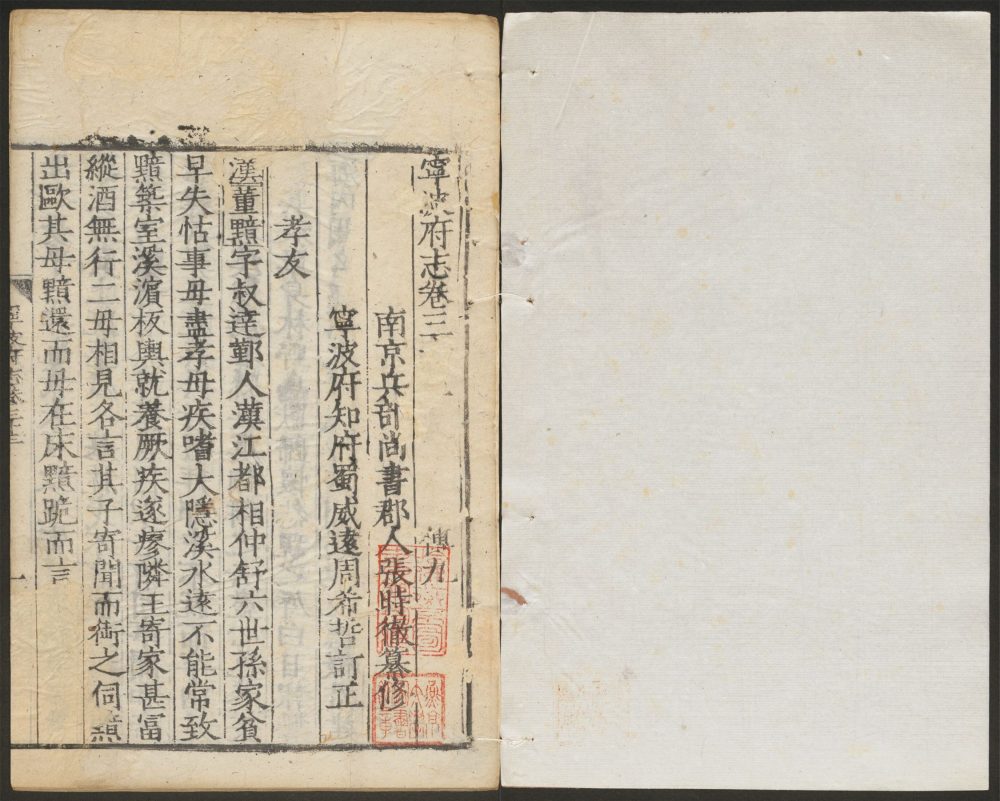 寧波府志卷三 傳九
南京兵部尚書郡人張時徹纂修
寧波府知府蜀威遠周希哲訂正
孝友
漢董黯字叔達鄞人漢江都相仲舒六世孫家貧
早失怙事母盡孝母疾嗜大隱溪水遠不能常致
黯築室溪濵板輿就養厥疾遂瘳隣王寄家甚富
縱酒無行二母相見各言其子寄聞而銜之伺黯
出歐其母黯還而母在床黯跪而言